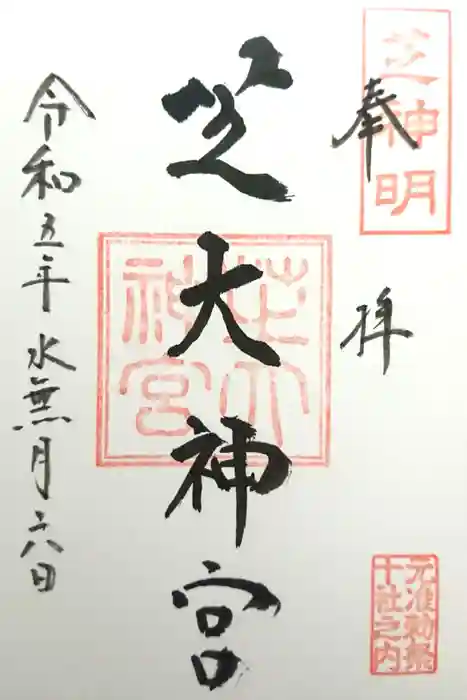 芝神明
奉拝
芝大神宮
芝大神宮
令和五年水無月六日
元准勅祭
十社之内